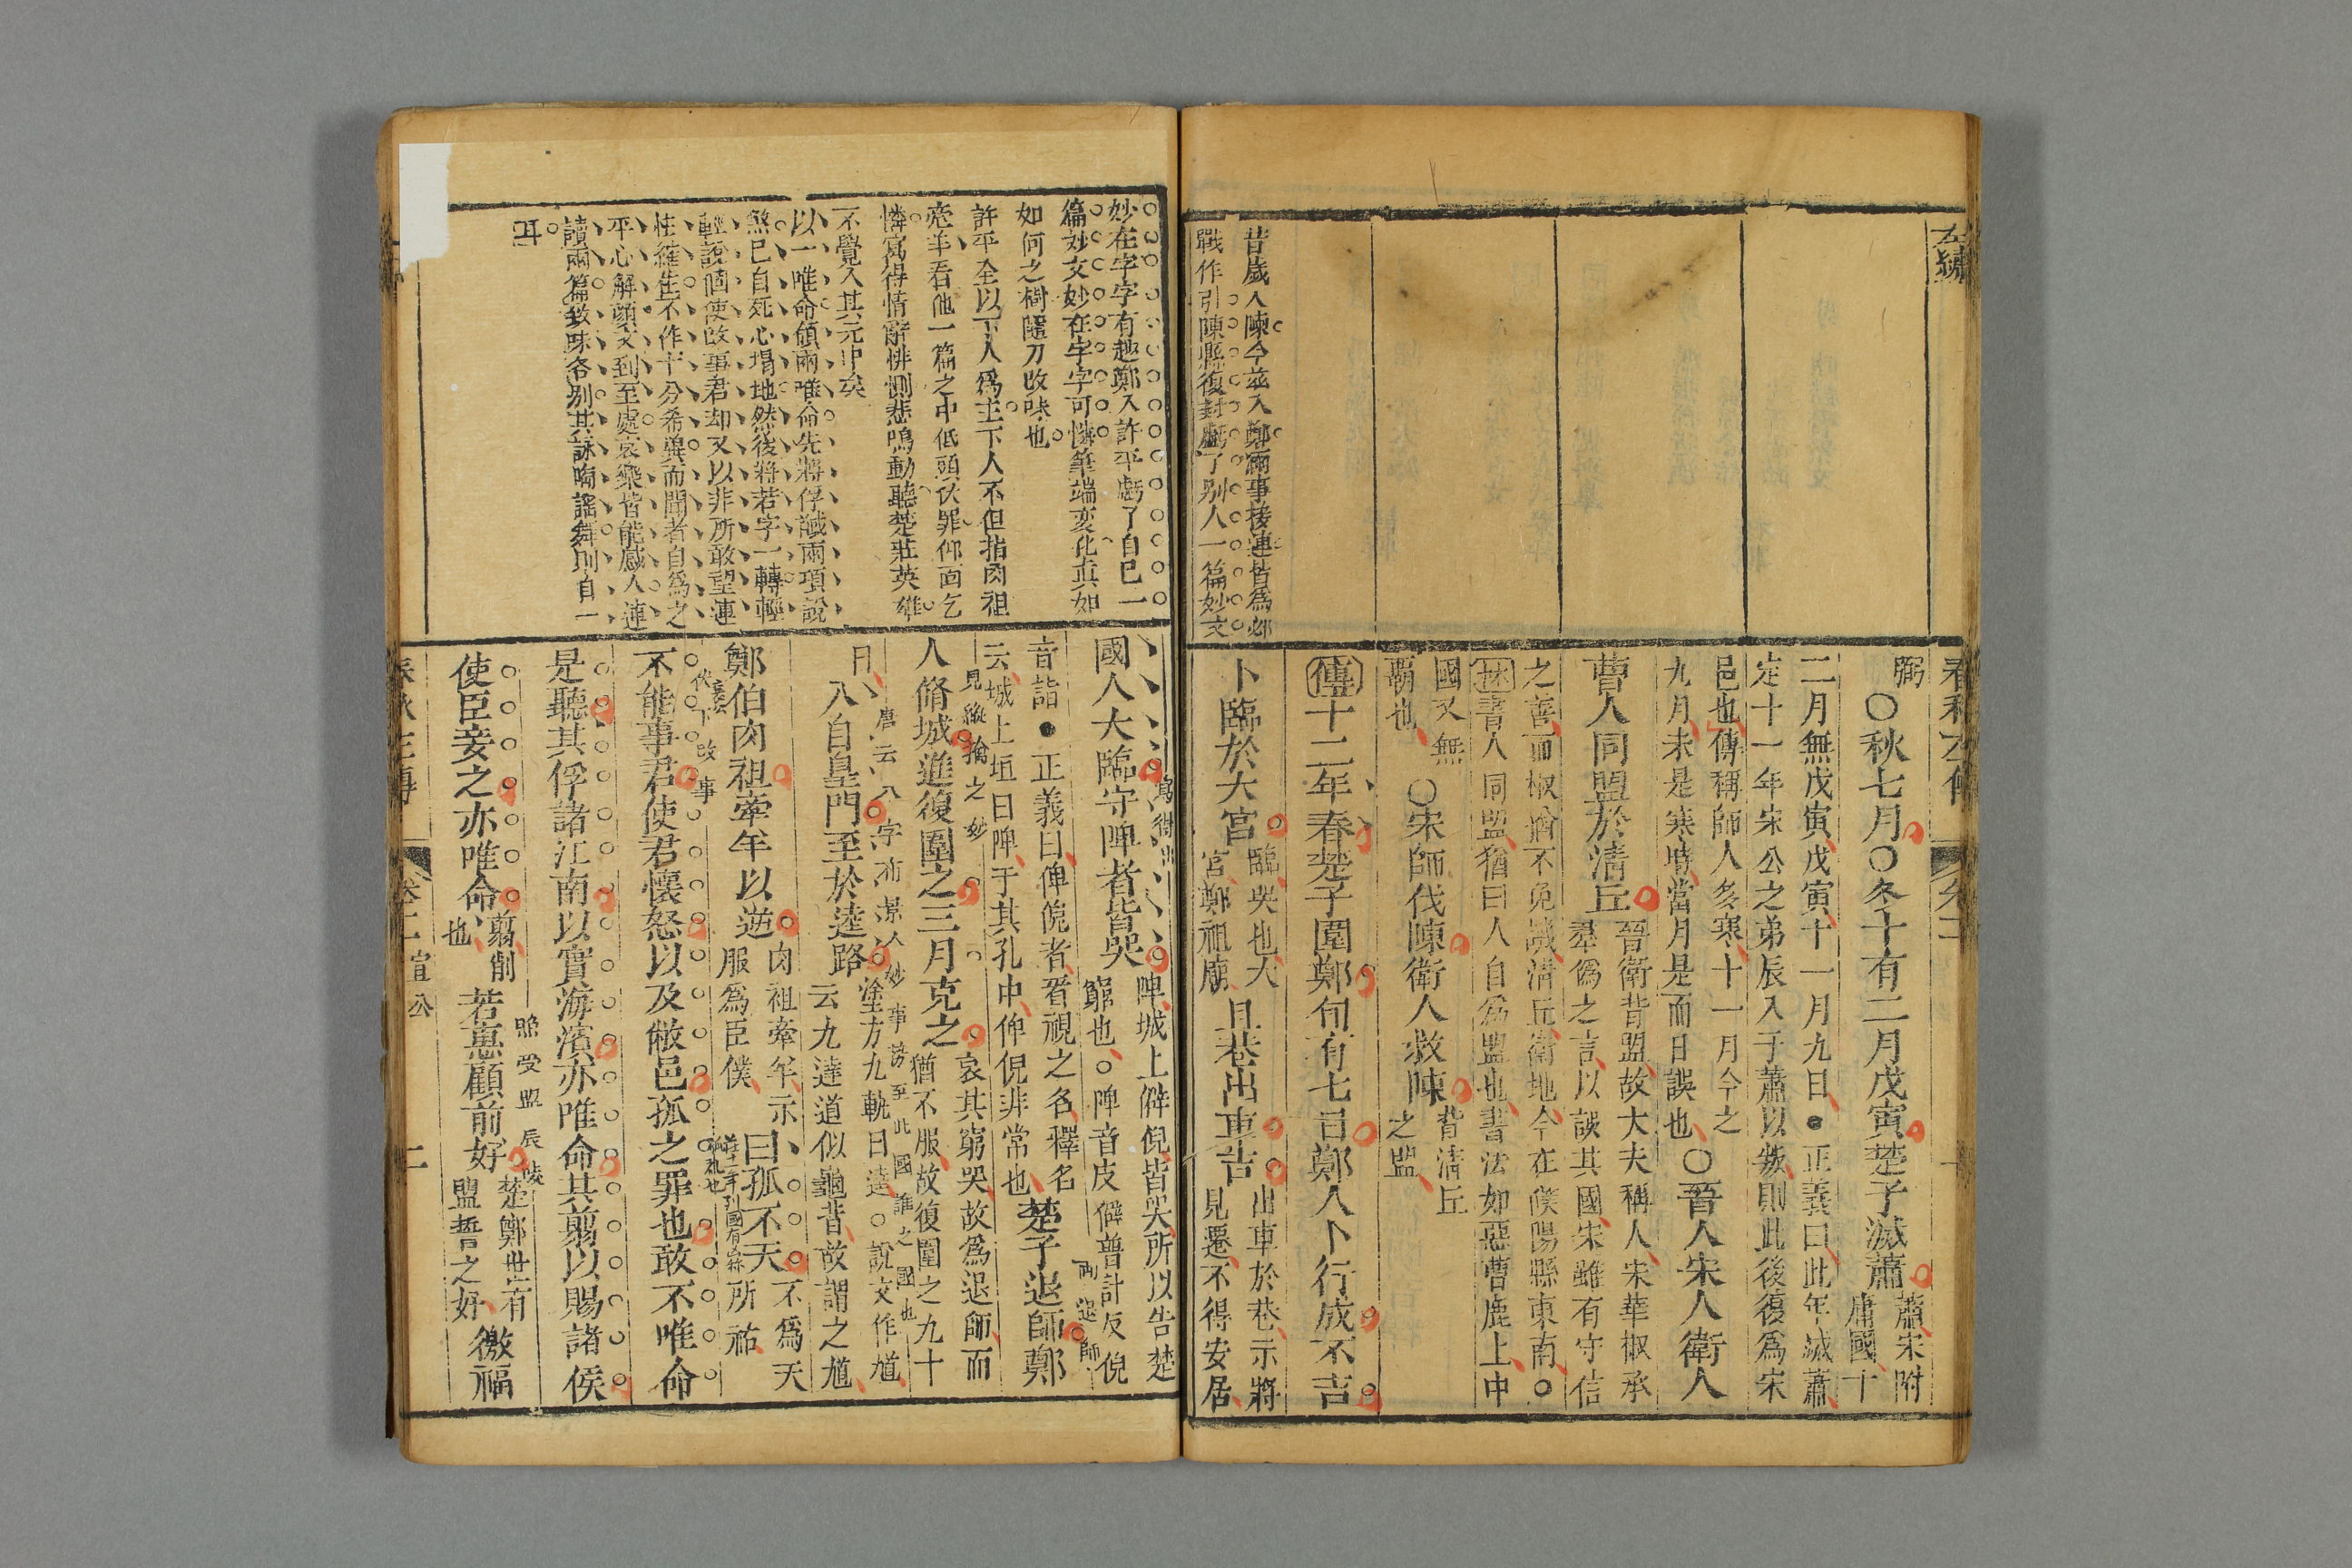 左繡
昔歲入陳今茲入鄭兩事後連皆為邲
戰作引陳縣復封虧了別人一篇妙文
春秋左傳
卷十一
郹
○秋七月○冬十有二月戊寅楚子滅蕭
蕭宋附
庸國十
二月無戊寅戊寅十一月九日●正義曰此年滅蕭
定十一年宋公之弟辰入于蕭以叛則此後復為宋
邑也傳稱師人多寒十一月今之
九月未是寒時當月是而日誤也
○晉人宋人衛人
曹人同盟於清丘
晉衛背盟故大夫稱人宋華椒承
羣偽之言以誤其國宋雖有守信
之善而椒猶不免譏清丘衛地今在濮陽縣東南○
林書人同盟猶曰人自為盟也書法如惡曹鹿上中
國又無
霸也
○宋師伐陳衛人救陳
背清丘
之盟
傳十二年春楚子圍鄭旬有七日鄭人卜行成不吉
卜臨於大宮
臨哭也大
宮鄭祖廟
且巷出車吉
出車於巷示將
見遷不得安居
妙在字字有趣鄭入許平虧了自己一
篇妙文妙在字字可憐筆端変化真如
如何之樹隨刀改味也
許平全以下人為主下人不但指肉袒
牽羊看他一篇之中低頭伏罪仰面乞
憐寫得情辭悱惻悲鳴動聽楚莊英雄
不覺入其元中矣
以一唯命領兩唯命先將俘諴兩項說
煞已自死心塌地然後將若字一轉輕
輕說個使改事君却又以非所敢望連
忙縮住不作十分希冀而聞者自為之
平心解頤文到至處哀樂皆能感人連
讀兩篇致味各別其詠嘯謠舞則自一
耳
國人大臨守陴者皆哭
寫得出
陴城上僻倪皆哭所以告楚
窮也○陴音皮僻普計反倪
音詣●正義曰俾倪者看視之名釋名
云城上垣曰陴于其孔中俾倪非常也
楚子退師鄭
兩退師
見縱擒之妙
人脩城進復圍之三月克之
哀其窮哭故為退師而
猶不服故復圍之九十
日
唐云八字布景入妙事誇至此國誰之國也
入自皇門至於逵路
塗方九軌曰逵○說文作馗
云九達道似龜背故謂之馗
鄭伯肉袒牽羊以逆
肉袒牽羊示
服為臣僕
曰孤不天
不為天
所祐
伏下改事
不能事君使君懷怒以及敝邑孤之罪也敢不唯命
是聽其俘諸江南以實海濱亦唯命其翦以賜諸侯
使臣妾之亦唯命
翦削
也
照受盟辰陵
若惠顧前好
楚鄭世有
盟誓之好
徼福
春秋左傳
卷十一宣公
二